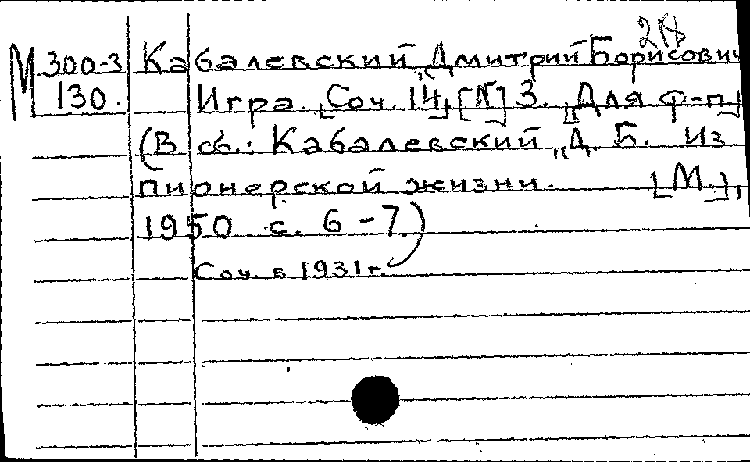 218
М 300-3 Кабалевский, Дмитрий Борисович
130. Игра. [Соч. 14], [N] 3. [Для ф-п]
(В сб.: Кабалевский, Д. Б. Из
пионерской жизни. [М.],
1950 с. 6-7.)
Соч. в 1931 г.